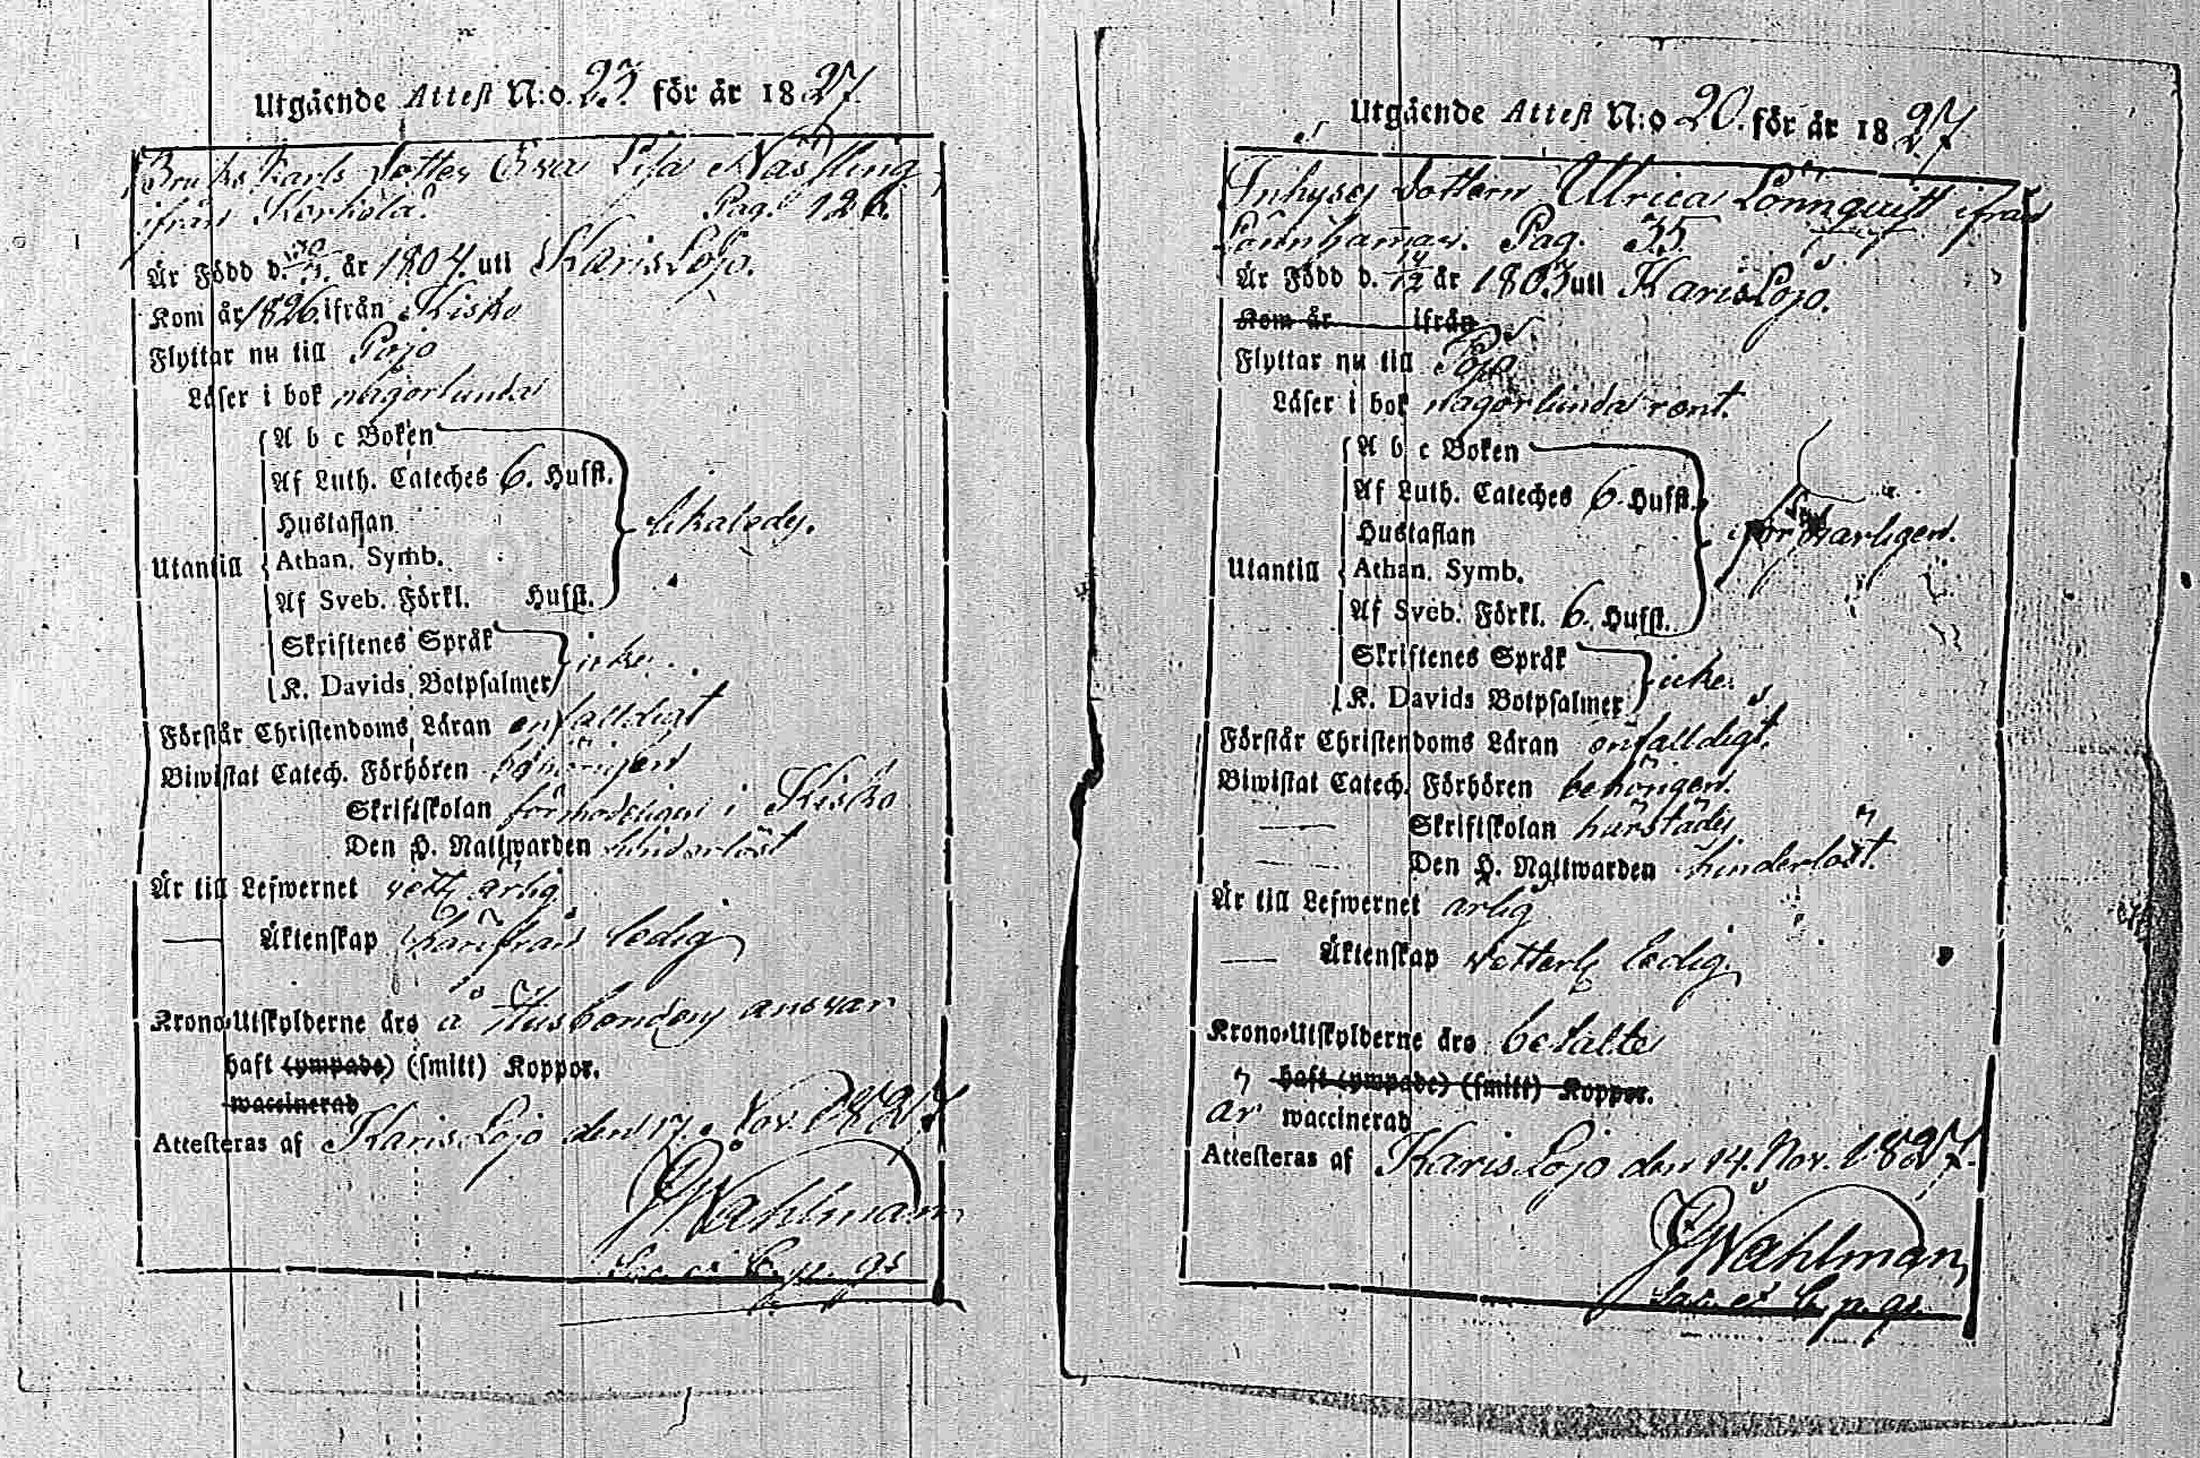 Utgående Attest N:o 23. för år 1827.
Bruks Karls Dotter Eva Lisa Nässling
ifrån Korkola. Pag. 126.
Är Född d. år 1804. uti Karis Lojo.
Kom år 1826. ifrån Kisko
Flyttar nu till Pojo
Läser i bok någorlunda
A b c Boken
Af Luth. Cateches 6. Hufst.
Hustaflan
Utantill Athan. Symb.
Af Sveb. Förkl. Hufst.
Skriftenes Språk
icke.
K. Davids Botpsalmer
Förstår Christendoms Läran enfalldigt
Biwistat Catech. Förhören behörigen
Skriftskolan förmodeligen i Kisko
Den H. Nattwarden hinderlöst
Är till Lefwernet vett. ärlig
— Äktenskap härifrån ledig
Krono-Utskylderne äro å Husbondens ansvar
haft (ympade) (smitt) Koppor.
waccinerad
Attesteras af Karis Lojo den 17. Nov. 1827
G Wåhlman
Utgående Attest N:o 20. för år 1827
Inhyses Dottern Ulrica Lönnquist ifrån
Lönnhammar. Pag. 35.
Är Född d. 14/12 år 1803 uti Karis Lojo.
Kom år ifrån
Flyttar nu till Pojo
Läser i bok någorlunda rent.
A b c Boken
Af Luth. Cateches 6. Hufst.
Hustaflan
Utantill Athan. Symb.
Af Sveb. Förkl. 6. Hufst.
Skriftenes Språk
icke.
K. Davids Botpsalmer
Förstår Christendoms Läran enfalldigt.
Biwistat Catech. Förhören behörigen.
— Skriftskolan härstädes
— Den H. Nattwarden hinderlöst.
Är till Lefwernet ärlig
— Äktenskap vetterl. ledig
Krono-Utskylderne äro betalte
haft (ympade) (smitt) Koppor.
är waccinerad
Attesteras af Karis Lojo den 14. Nov. 1827.
G Wåhlman